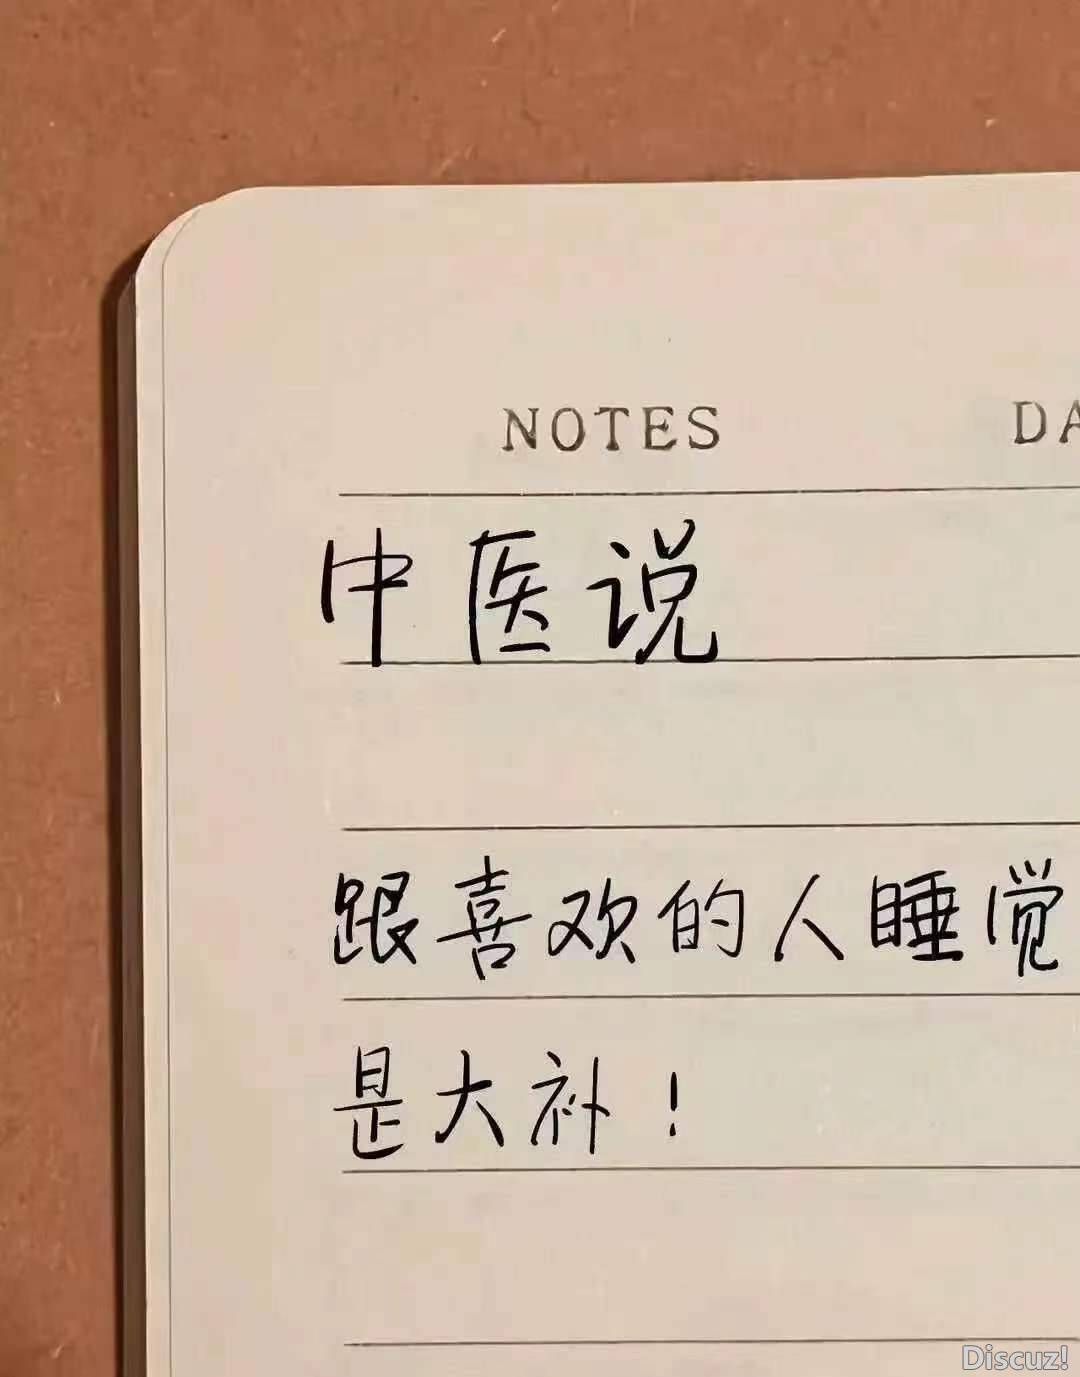 NOTES DA
中医说
跟喜欢的人睡觉
是大补！
Discuz!